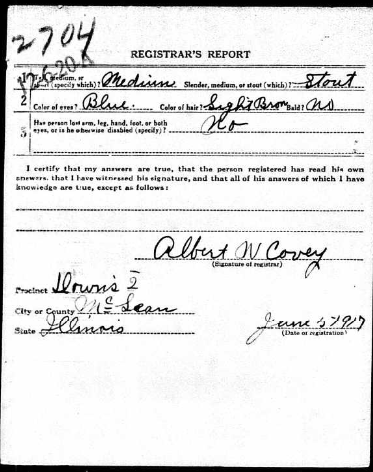 2704
REGISTRAR'S REPORT
1 Tall, medium, or short (specify which)? Medium Slender, medium, or stout (which)? Stout
2 Color of eyes? Blue Color of hair? Light Brown Bald? No
3 Has person lost arm, leg, hand, foot, or both
eyes, or is he otherwise disabled (specify)? No
I certify that my answers are true, that the person registered has read his own
answers, that I have witnessed his signature, and that all of his answers of which I have
knowledge are true, except as follows:
Albert W Covey
(Signature of registrar)
Precinct Downs 2
City or County McLean
State Illinois
June 5 1917
(Date of registration)